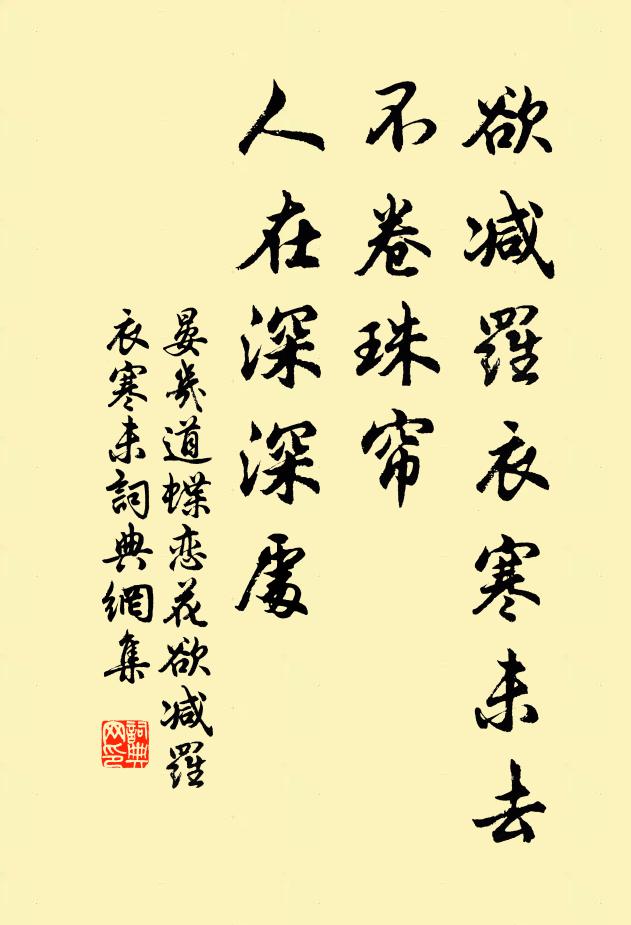 欲减羅衣寒未去
不卷珠帘
人在深深處
晏幾道蝶恋花欲减羅
衣寒未詞典網集
詞典网印